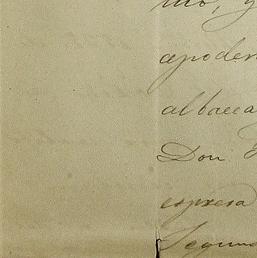 apoder
albacea
Don
espresa
Segun